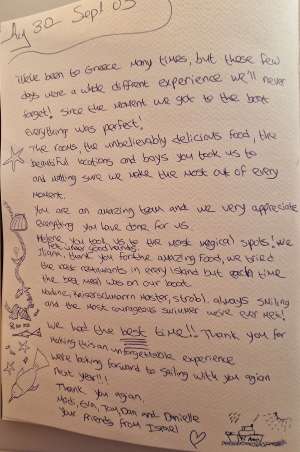 Aug 30 Sept 05
We've been to Greece many times, but those few
days were a wide diffrent experience we'll never
forget! Since the moment we got to the boat
everything was perfect!
The rooms, the unbelievably delicious food, the
beautiful locations and bays you took us to
and making sure we make the most out of every
moment.
You are an amazing team and we very appreciate
everything you have done for us.
Helene you took us to the most magical spots! We
felt under good hands.
thank you for the amazing food, we tried
the best restaurants in every island but each time
the best meal was on our boat.
Nadine, Kaiserschmarrn master, strobl, always smiling
and the most courageous swimmer we've ever met!
We had the best time!! Thank you for
making this an unforgettable experience
We're looking forward to sailing with you agian
next year!!!
Thank you agian,
Dan and Danielle
Your friends from Israel